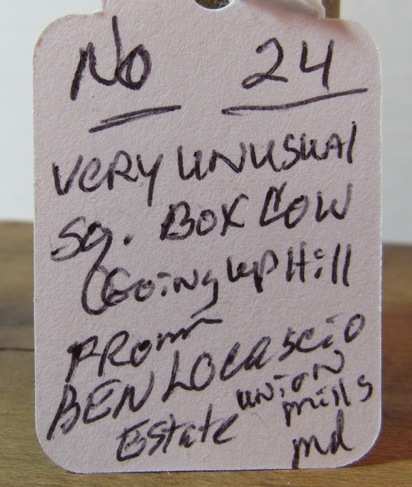 No 24
VERY UNUSUAL
SQ. BOX COW
(Going UP Hill
FROM
BEN LOCASCIO
Estate UNION
mills
md